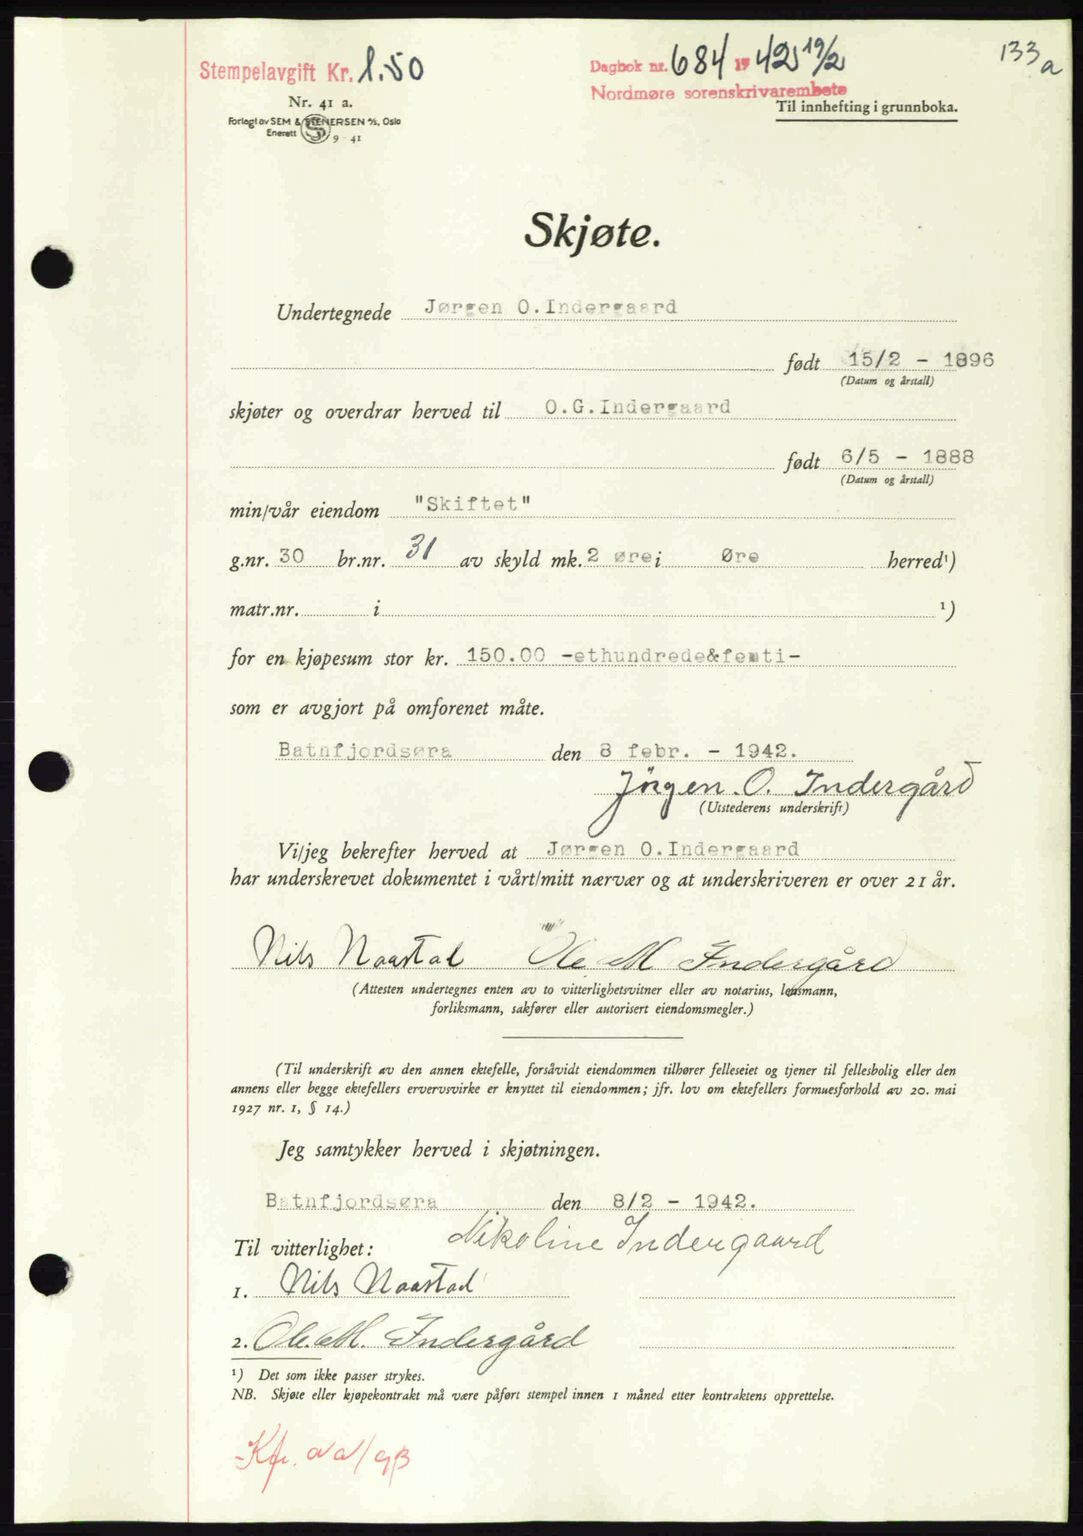 Stempelavgift Kr. 1.50
Dagbok nr. 684 1942 19/2
133 a
Nordmøre sorenskrivarembete
Nr. 41 a.
Til innhefting i grunnboka.
Forlagt av SEM & STENERSEN A/S, Oslo
Enerett
9 - 41
Skjøte.
Undertegnede Jørgen O.Indergaard
født 15/2 - 1896
(Datum og årstall)
skjøter og overdrar herved til O.G.Indergaard
født 6/5 - 1888
(Datum og årstall)
min/vår eiendom "Skiftet"
g.nr. 30 br.nr. 31 av skyld mk. 2 øre i Øre herred¹)
matr.nr. i ¹)
for en kjøpesum stor kr. 150.00 -ethundrede&femti-
som er avgjort på omforenet måte.
Batnfjordsøra den 8 febr. - 1942.
Jörgen. O. Indergård
(Utstederens underskrift)
Vi/jeg bekrefter herved at Jørgen O.Indergaard
har underskrevet dokumentet i vårt/mitt nærvær og at underskriveren er over 21 år.
Nils Naastad Ole. M Indergård
(Attesten undertegnes enten av to vitterlighetsvitner eller av notarius, lensmann,
forliksmann, sakfører eller autorisert eiendomsmegler.)
(Til underskrift av den annen ektefelle, forsåvidt eiendommen tilhører felleseiet og tjener til fellesbolig eller den
annens eller begge ektefellers ervervsvirke er knyttet til eiendommen; jfr. lov om ektefellers formuesforhold av 20. mai
1927 nr. 1, § 14.)
Jeg samtykker herved i skjøtningen.
Batnfjordsøra den 8/2 - 1942.
Nikoline Indergaard
Til vitterlighet:
1. Nils Naastad
2. Ole. M. Indergård
¹) Det som ikke passer strykes.
NB. Skjøte eller kjøpekontrakt må være påført stempel innen 1 måned etter kontraktens opprettelse.